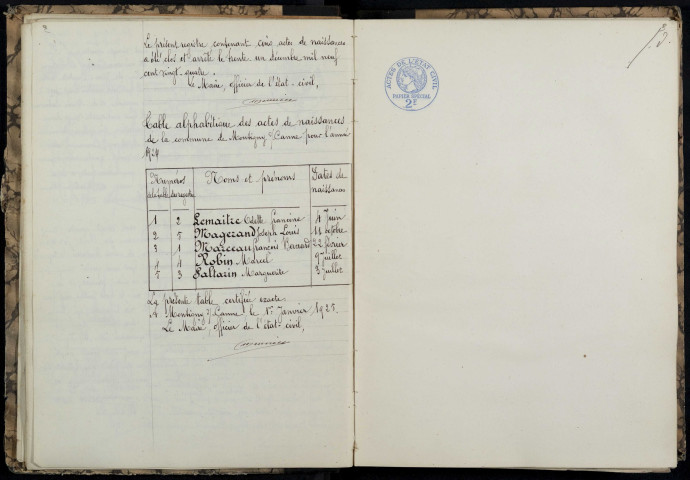 Le présent registre contenant cinq actes de naissances
a été clos et arrêté le trente un décembre mil neuf
cent vingt-quatre.
Le Maire, officier de l'état-civil,
Table alphabétique des actes de naissances
de la commune de Montigny s/ Canne pour l'année
1924
Numéros Noms et prénoms Dates de
de la table du registre naissances
1 2 Lemaitre Odette Francine 4 Juin
2 5 Magerand Joseph Louis 11 Octobre
3 1 Marceau François Bernard 22 février
4 4 Robin Marcel 9 Juillet
5 3 Taltarin Marguerite 3 Juillet
La présente table certifiée exacte.
A Montigny s/ Canne le 1er Janvier 1925.
Le Maire, officier de l'état-civil,
ACTES DE L'ETAT CIVIL
PAPIER SPECIAL
2F